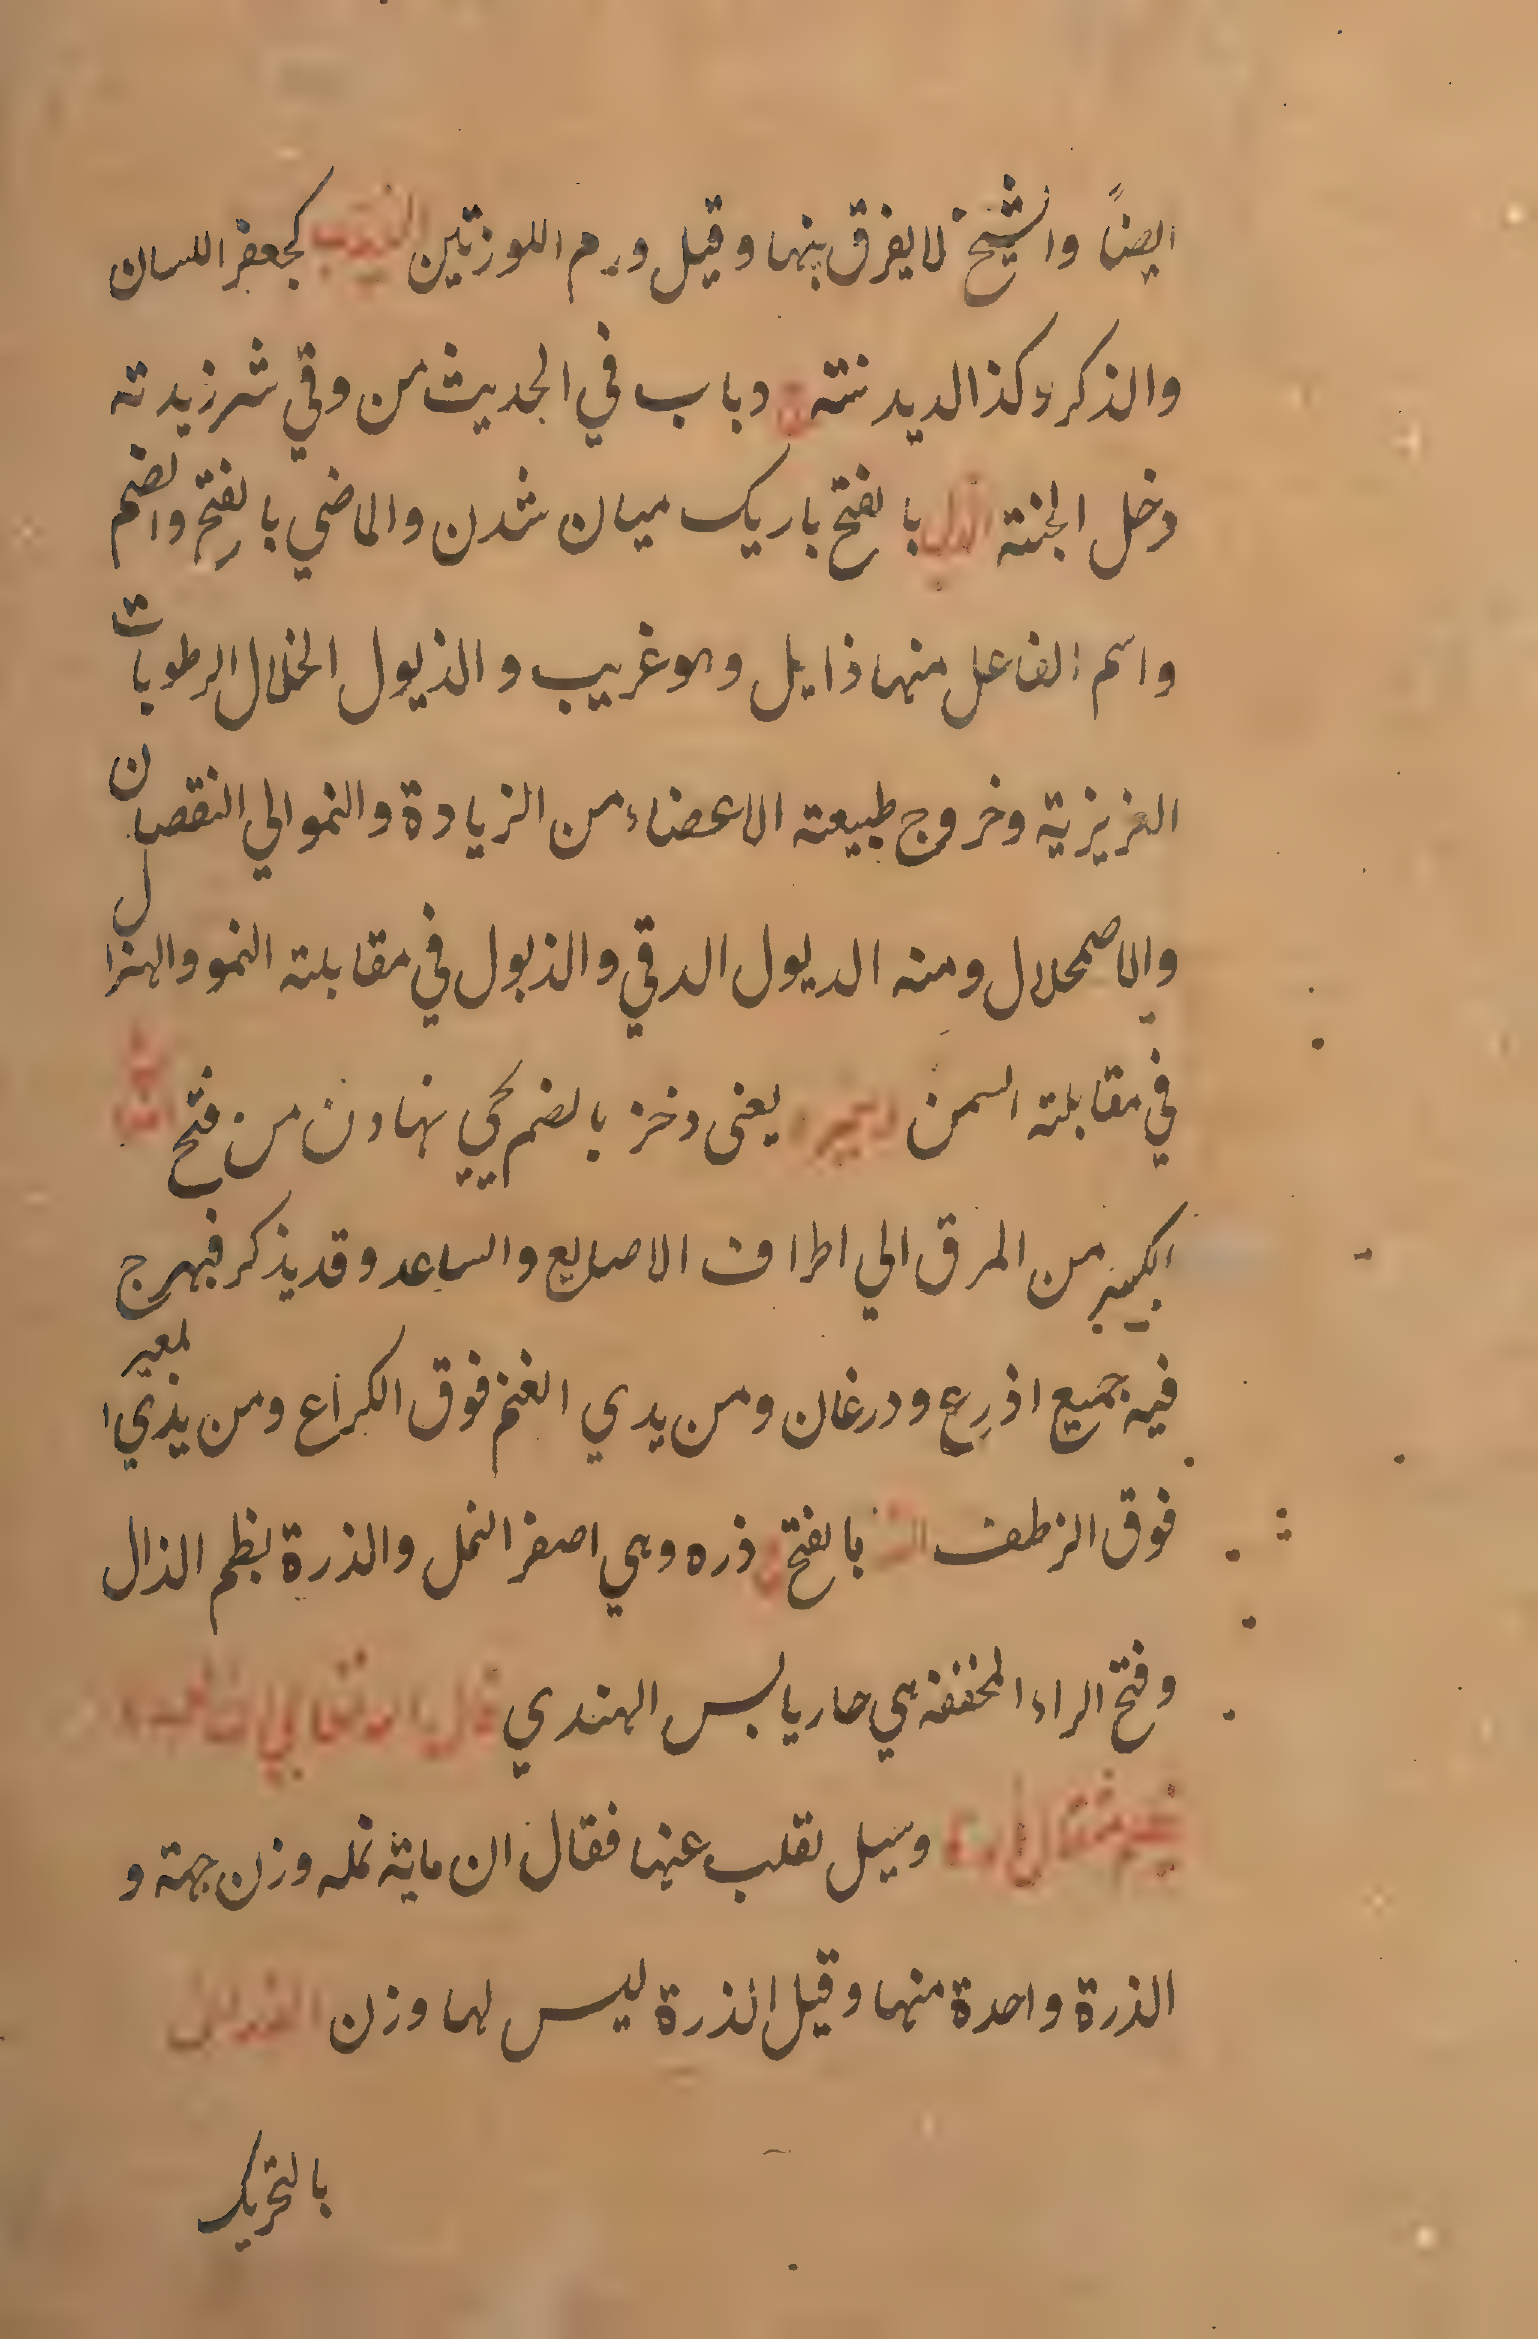 ايضاً والشيخ لا يفرق بينها وقيل ورم اللوزتين كجعفر اللسان
والذكر وكذا الديدنته دباب في الحديث من وقي شر زيدته
دخل الجنته بالفتح باريك ميان شدن والماضي بالفتح والضم
واسم الفاعل منها ذايل وهو غريب والذيول انحلال الرطوبات
الغريزية وخروج طبيعته الاعضاء من الزيادة والنمو الي النقصان
والاصمحلال ومنه الديول الدقي والذبول في مقابلته النمو والهزال
في مقابلته السمن يعنى دخز بالضم نهادن من فتح
من المرق الي اطراف الاصابع والساعد وقد يذكر فيهرج
فيه جميع اذرع ودرغان ومن يدي الغنم فوق الكراع ومن يذي المعير
فوق الزطف بالفتح ذره وهي اصغر النمل والذرة بظم الذال
وفتح الراء المخففه هي حار يابس الهندي قال الله تعالي
مثقال ذرة وسيل تقلب عنها فقال ان ماية نمله وزن جهته و
الذرة واحدة منها وقيل الذرة ليس لها وزن
بالتحريك